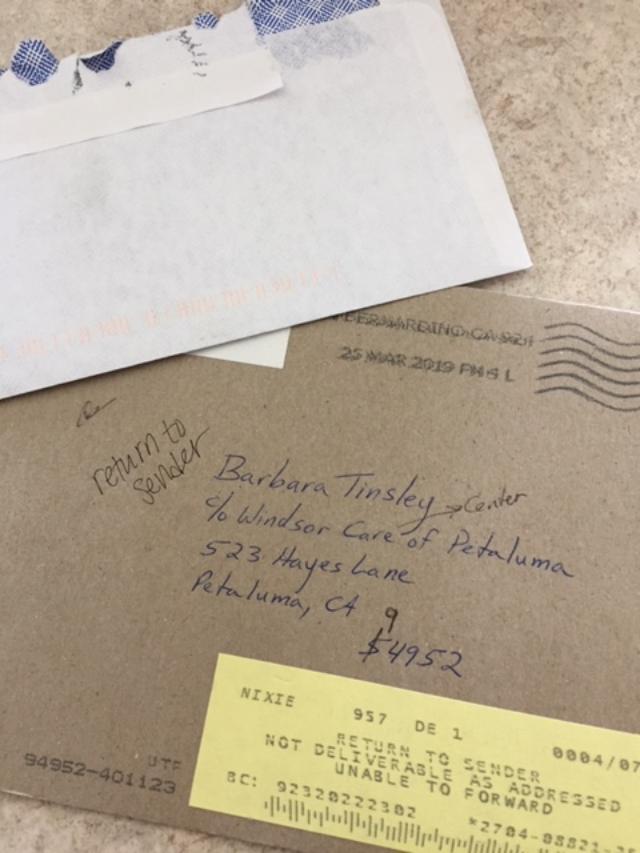 BERNARDINO CA 92
25 MAR 2019 PM 6 L
return to
sender
Barbara Tinsley → Center
c/o Windsor Care of Petaluma
523 Hayes Lane
Petaluma, CA
9
$4952
NIXIE 957 DE 1 0004/07
RETURN TO SENDER
NOT DELIVERABLE AS ADDRESSED
UNABLE TO FORWARD
UTF
94952-401123
BC: 92320222302 *2704-08821-